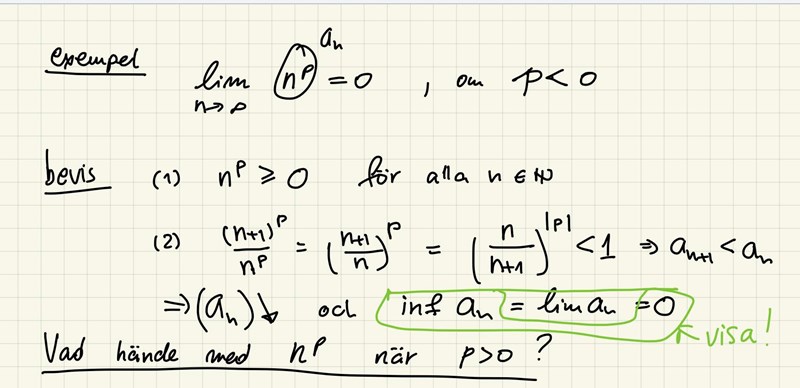 exempel lim n→∞ (n^p) = 0 , om p < 0
a_n
bevis (1) n^p ≥ 0 för alla n ∈ ℕ
(2) (n+1)^p / n^p = ((n+1)/n)^p = (n/(n+1))^|p| < 1 ⇒ a_{n+1} < a_n
⇒ (a_n)↓ och inf a_n = lim a_n = 0
visa!
Vad hände med n^p när p>0 ?